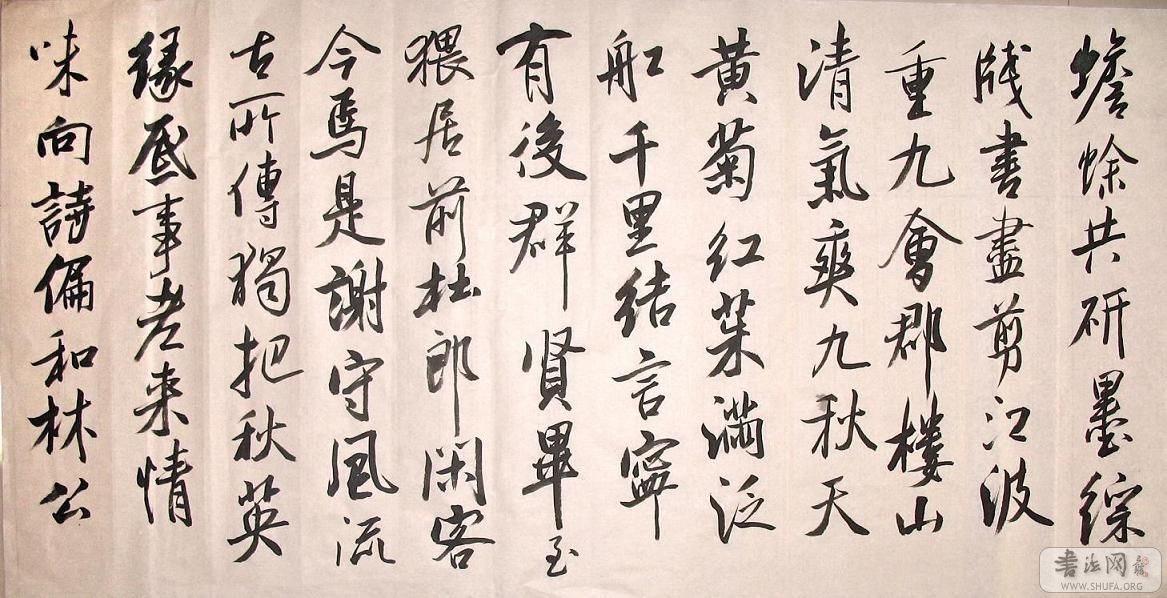 蟾蜍共研墨綵
牋書盡剪江波
重九會郡樓山
清氣爽九秋天
黄菊紅茱滿泛
舡千里結言寧
有後群賢畢至
猥居前杜郎閑客
今焉是謝守風流
古所傳獨把秋英
緣底事老来情
味向詩偏和林公
書法网
WWW.SHUFA.ORG